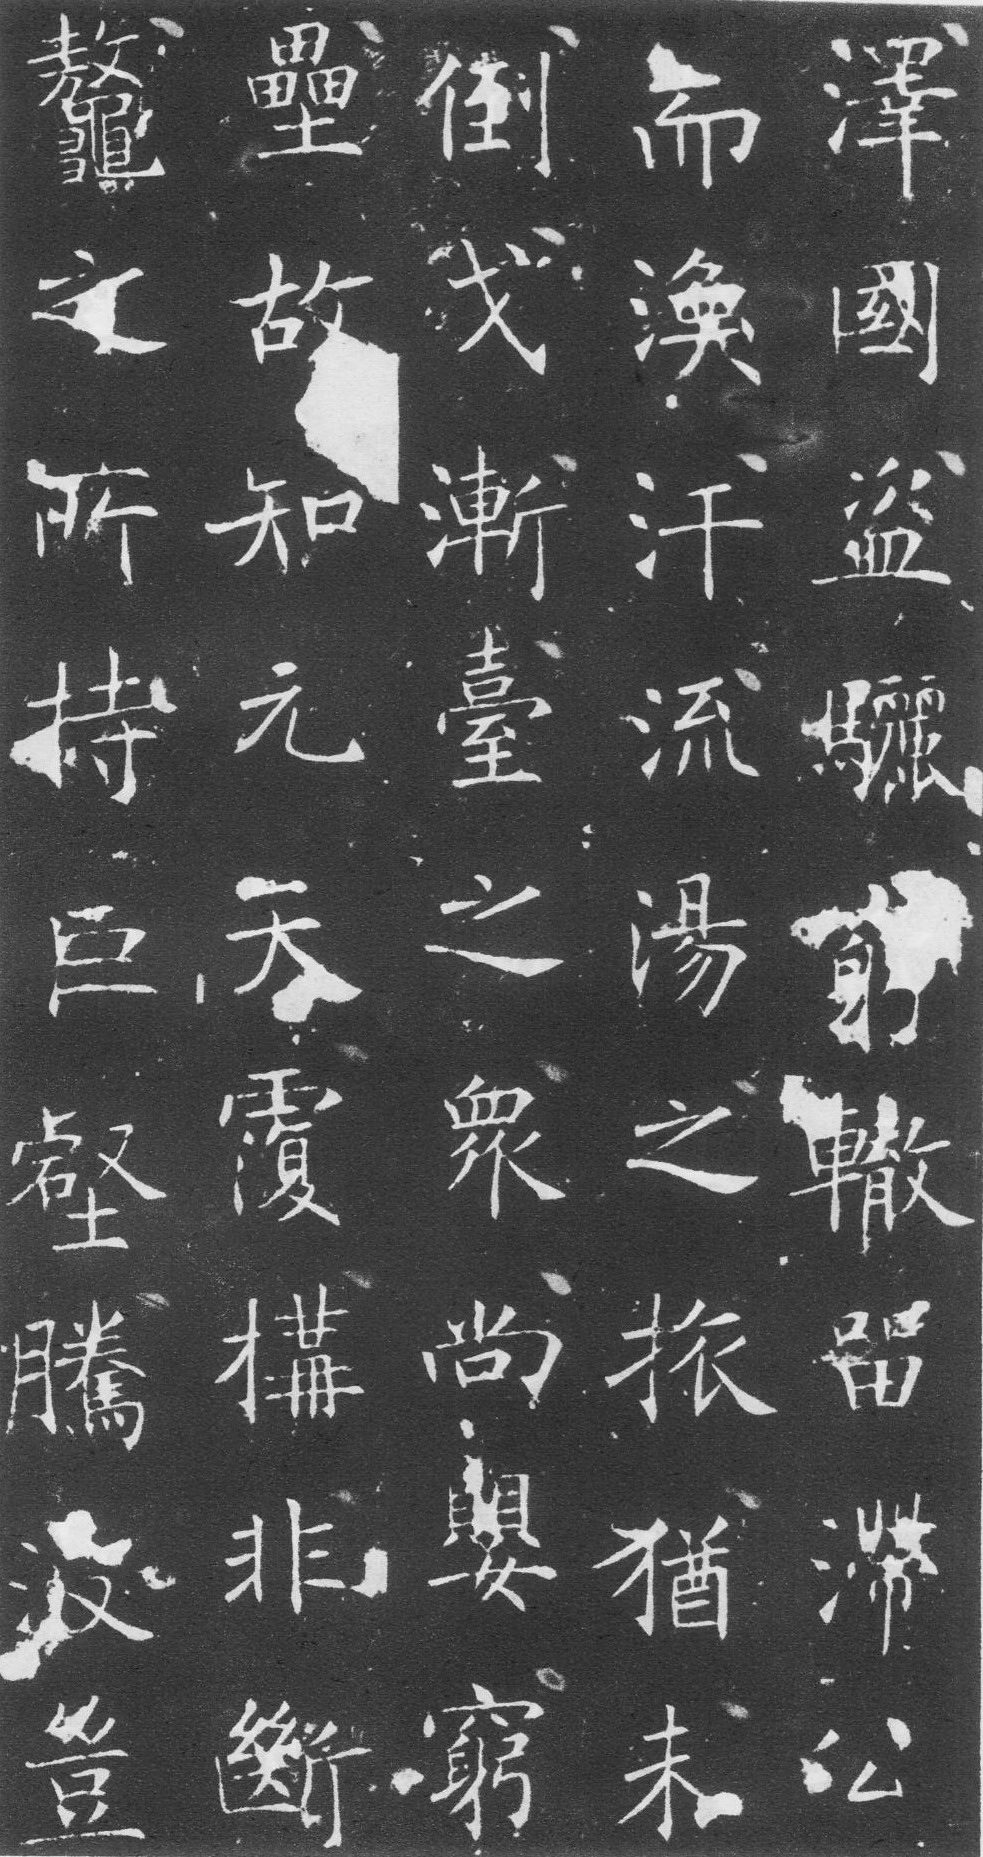 澤國盜驪窮轍留滯公
而渙汗流湯之旅猶未
倒戈漸臺之衆尚嬰窮
壘故知元天覆構非斷
鼇之所持巨壑騰波豈